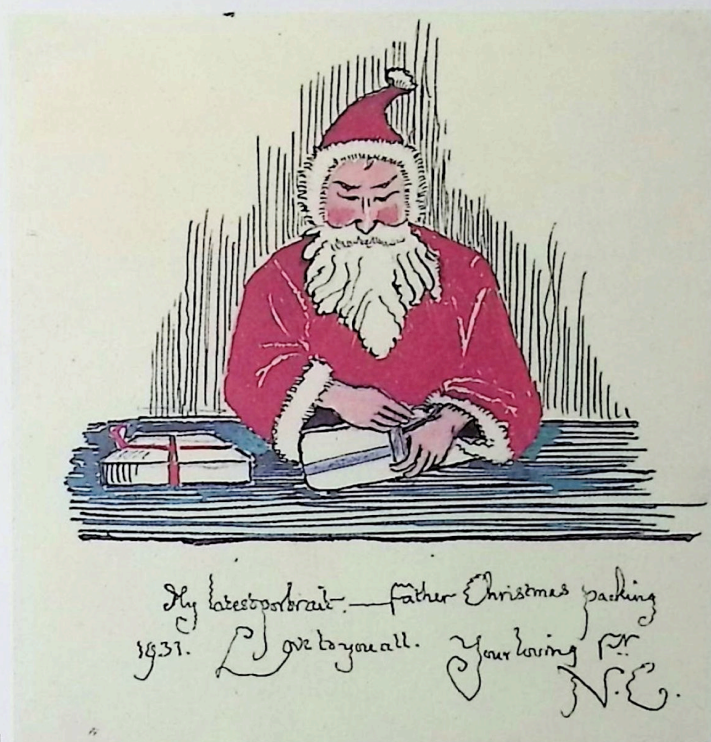 My latest portrait. — Father Christmas packing
1931. Love to you all. Your loving Fr.
N.C.